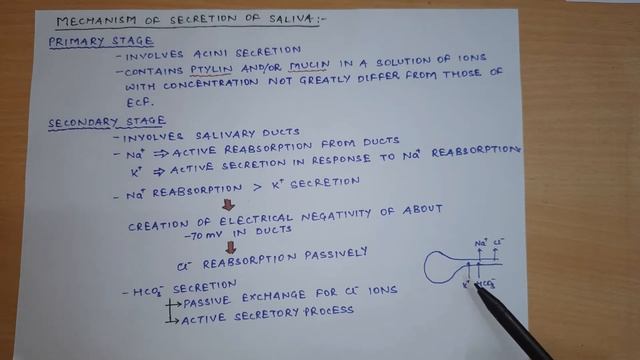 MECHANISM OF SECRETION OF SALIVA:-
PRIMARY STAGE
- INVOLVES ACINI SECRETION
- CONTAINS PTYLIN AND/OR MUCIN IN A SOLUTION OF IONS
WITH CONCENTRATION NOT GREATLY DIFFER FROM THOSE OF
ECF.
SECONDARY STAGE
- INVOLVES SALIVARY DUCTS
- Na⁺ ⇒ ACTIVE REABSORPTION FROM DUCTS
K⁺ ⇒ ACTIVE SECRETION IN RESPONSE TO Na⁺ REABSORPTION
- Na⁺ REABSORPTION > K⁺ SECRETION
CREATION OF ELECTRICAL NEGATIVITY OF ABOUT
-70 mV IN DUCTS
Cl⁻ REABSORPTION PASSIVELY
- HCO₃⁻ SECRETION
PASSIVE EXCHANGE FOR Cl⁻ IONS
ACTIVE SECRETORY PROCESS
Na⁺ Cl⁻
K⁺ HCO₃⁻